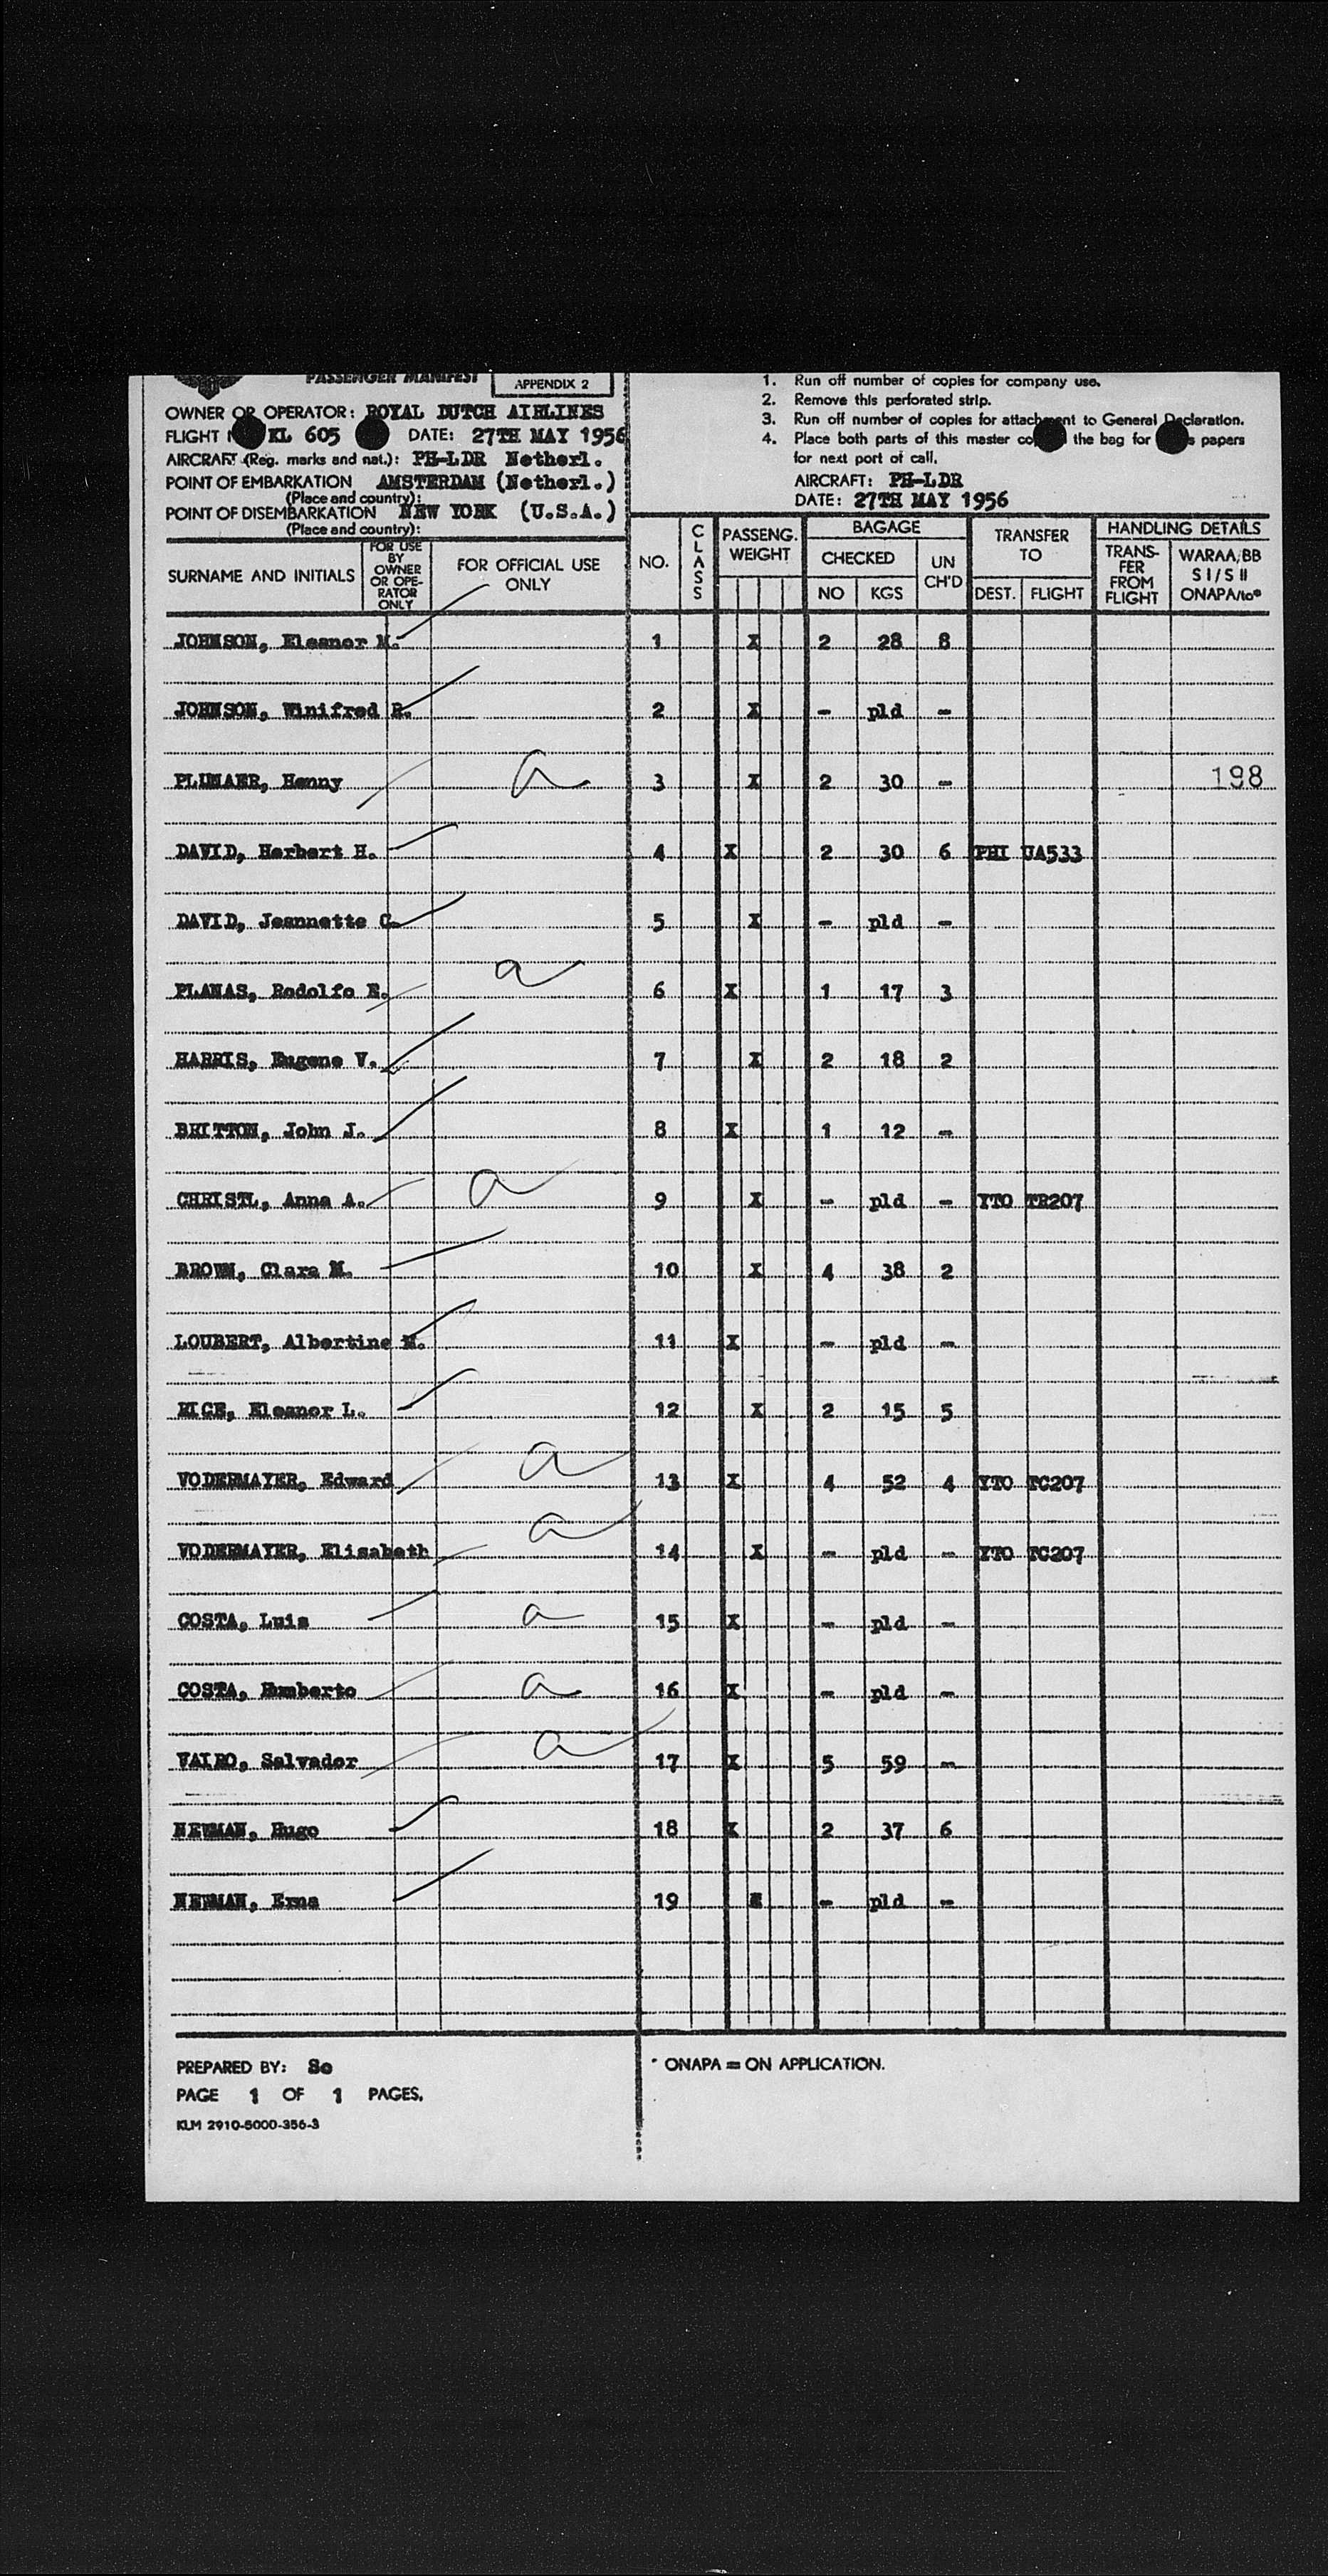 PASSENGER MANIFEST
APPENDIX 2
OWNER OR OPERATOR: ROYAL DUTCH AIRLINES
FLIGHT KL 605 DATE: 27TH MAY 1956
AIRCRAFT (Reg. marks and nat.): PH-LDR Netherl.
POINT OF EMBARKATION AMSTERDAM (Netherl.)
(Place and country):
POINT OF DISEMBARKATION NEW YORK (U.S.A.)
(Place and country):
1. Run off number of copies for company use.
2. Remove this perforated strip.
3. Run off number of copies for attachment to General Declaration.
4. Place both parts of this master the bag for papers
for next port of call.
AIRCRAFT: PH-LDR
DATE: 27TH MAY 1956
SURNAME AND INITIALS
FOR USE
BY
OWNER
OR OPE-
RATOR
ONLY
FOR OFFICIAL USE
ONLY
NO.
CLASS
PASSENG.
WEIGHT
BAGAGE
CHECKED
NO KGS
UN
CH'D
TRANSFER
TO
DEST. FLIGHT
HANDLING DETAILS
TRANS-
FER
FROM
FLIGHT
WARAA, BB
S I / S II
ONAPA/to*
JOHNSON, Eleanor M. 1 X 2 28 8
JOHNSON, Winifred R. 2 X - pld -
PLUMAER, Henny a 3 X 2 30 - 198
DAVID, Herbert H. 4 X 2 30 6 PHI UA533
DAVID, Jeannette C. 5 X - pld -
PLANAS, Rodolfo E. a 6 X 1 17 3
HARRIS, Eugene V. 7 X 2 18 2
BRITTON, John J. 8 X 1 12 -
CHRISTL, Anna A. a 9 X - pld - YTO TR207
BROWN, Clara M. 10 X 4 38 2
LOUBERT, Albertine M. 11 X - pld -
RICE, Eleanor L. 12 X 2 15 5
VODERMAYER, Edward a 13 X 4 52 4 YTO TC207
VODERMAYER, Elisabeth a 14 X - pld - YTO TC207
COSTA, Luis a 15 X - pld -
COSTA, Humberto a 16 X - pld -
VAIRO, Salvador a 17 X 5 59 -
NEUMAN, Hugo 18 X 2 37 6
NEUMAN, Erna 19 X - pld -
PREPARED BY: So
PAGE 1 OF 1 PAGES.
KLM 2910-5000-356-3
* ONAPA = ON APPLICATION.